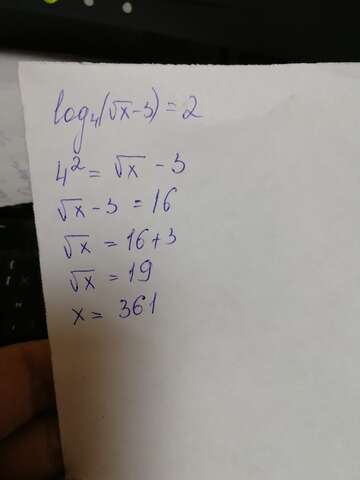 log₄(√x-3)=2
4² = √x - 3
√x - 3 = 16
√x = 16+3
√x = 19
x = 361